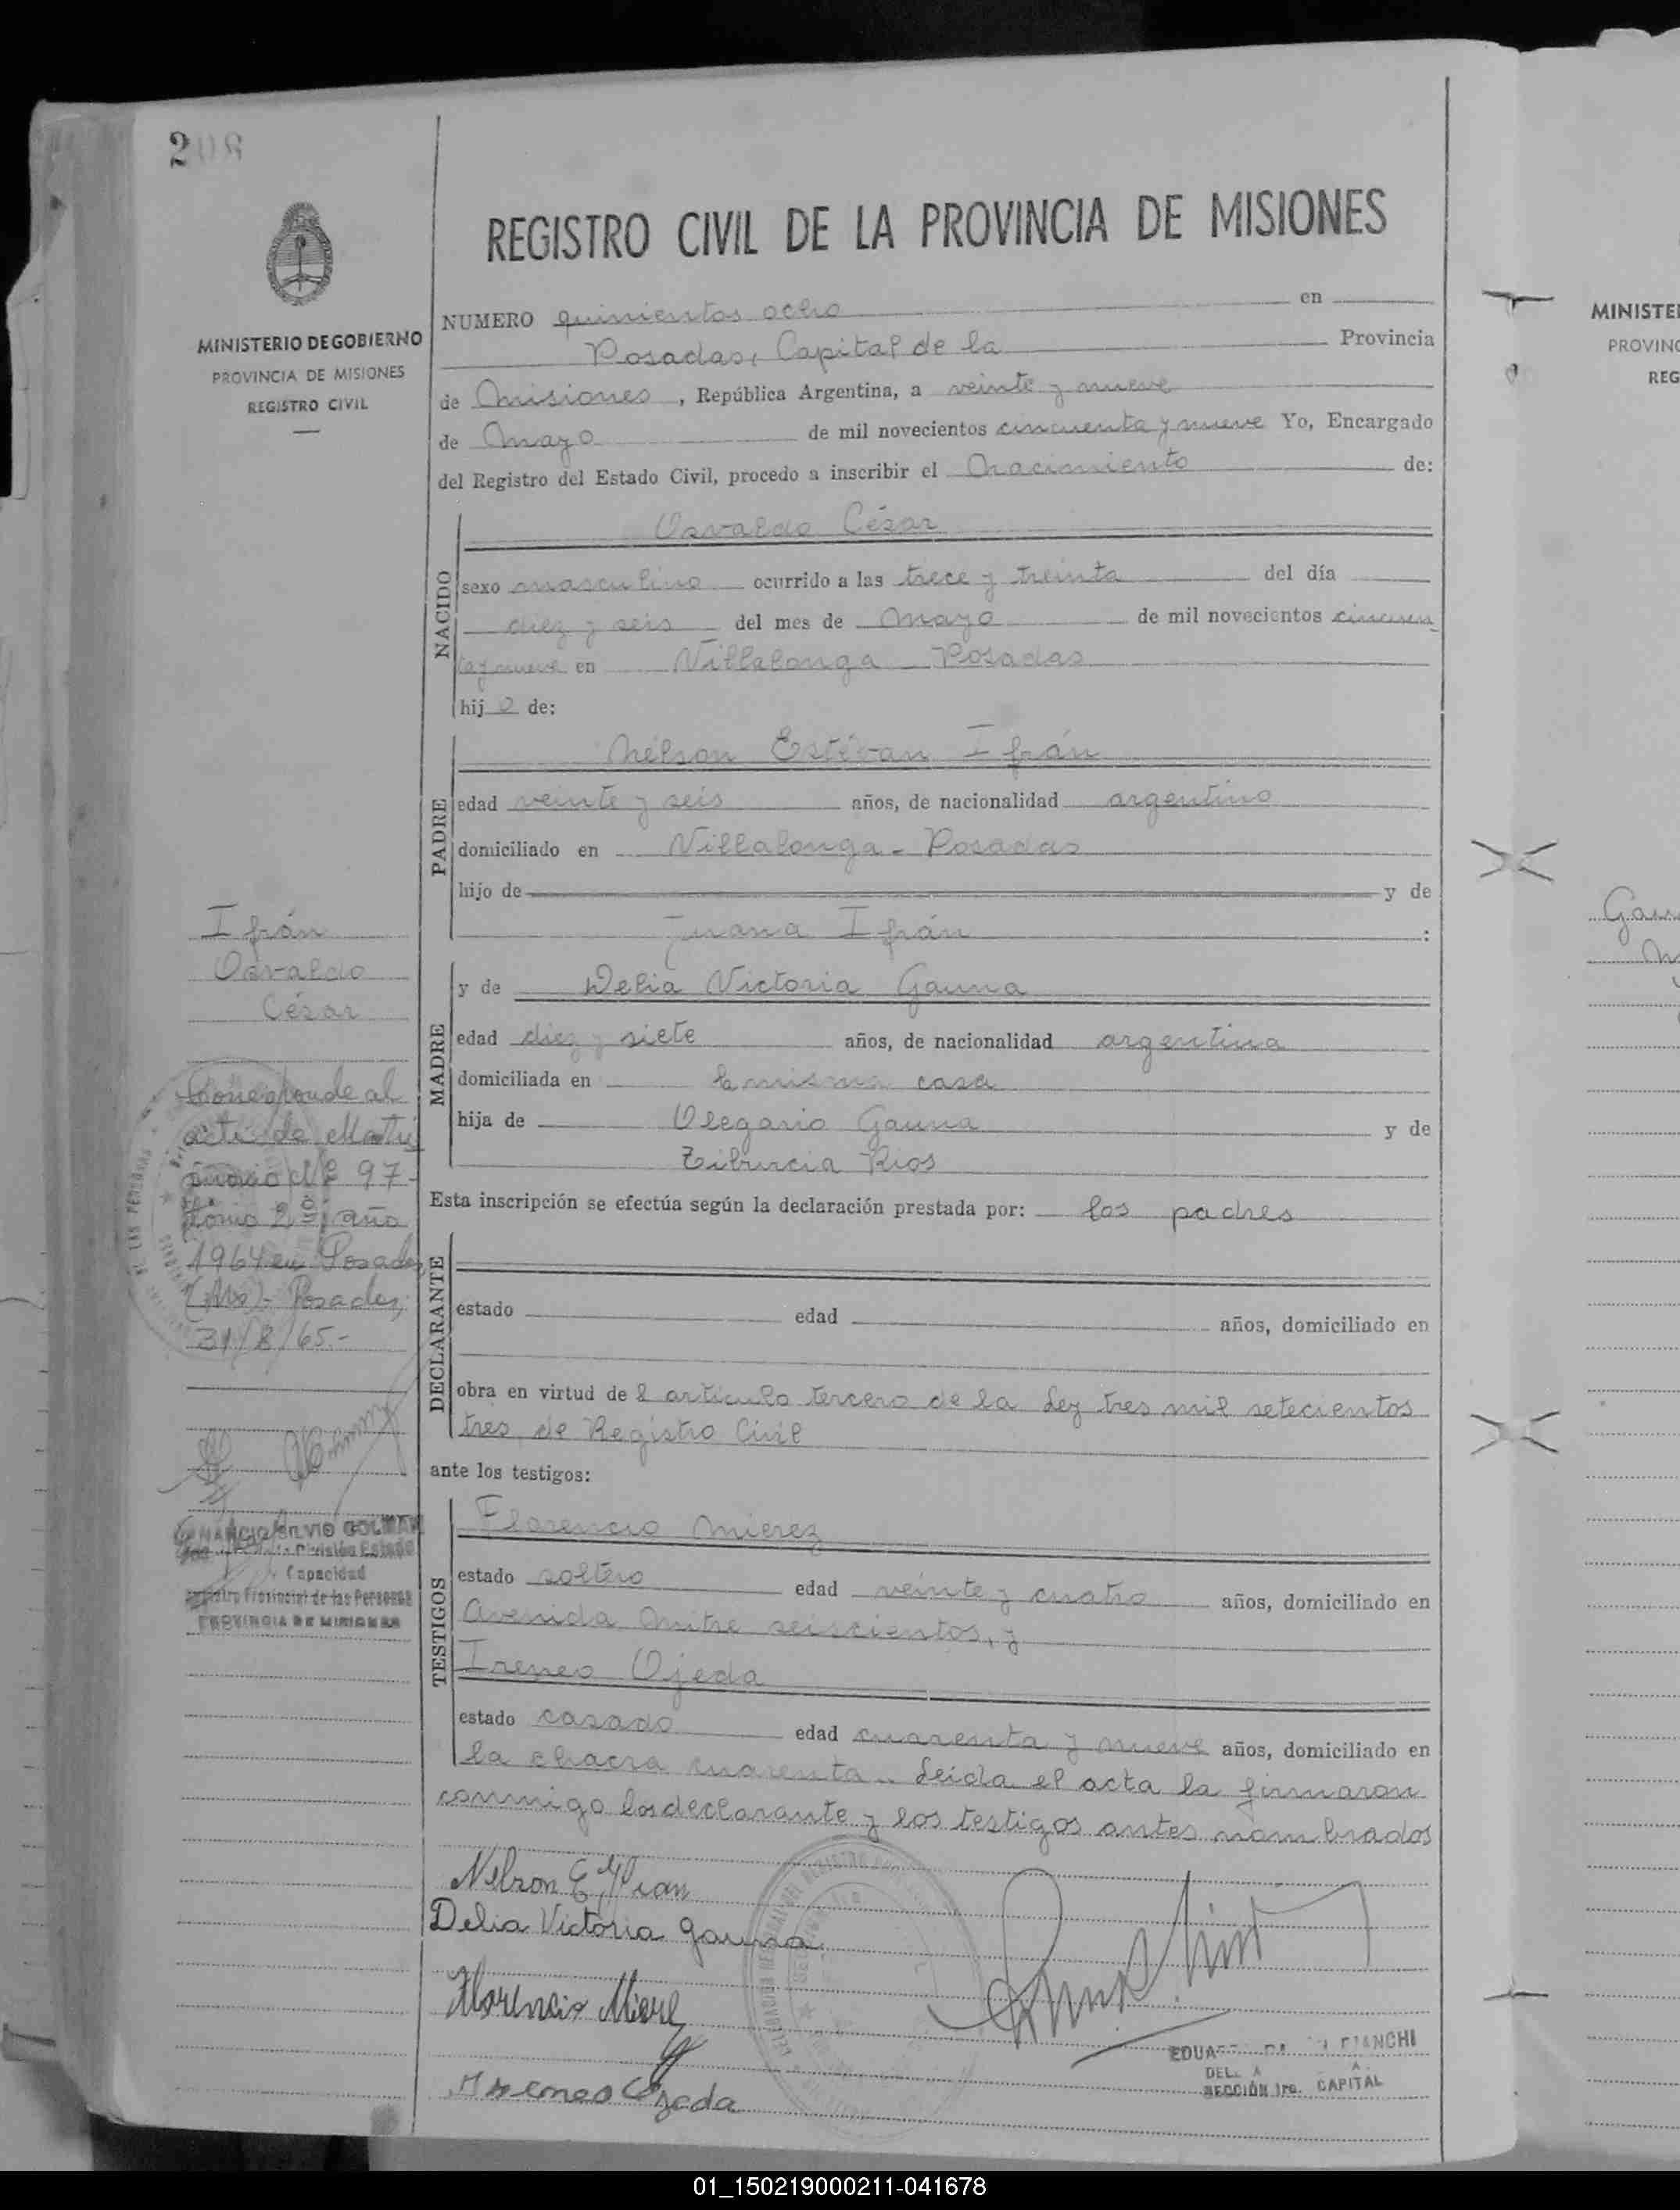 208
REGISTRO CIVIL DE LA PROVINCIA DE MISIONES
MINISTERIO DE GOBIERNO
PROVINCIA DE MISIONES
REGISTRO CIVIL
NUMERO quinientos ocho en
Posadas, Capital de la Provincia
de Misiones, República Argentina, a veinte y nueve
de Mayo de mil novecientos cincuenta y nueve Yo, Encargado
del Registro del Estado Civil, procedo a inscribir el Nacimiento de:
NACIDO
Osvaldo César
sexo masculino ocurrido a las trece y treinta del día
diez y seis del mes de Mayo de mil novecientos cincuen
ta y nueve en Villalonga - Posadas
hijo de:
PADRE
Nélson Estéban Ifrán
edad veinte y seis años, de nacionalidad argentino
domiciliado en Villalonga - Posadas
hijo de y de
Juana Ifrán :
MADRE
y de Delia Victoria Gauna
edad diez y siete años, de nacionalidad argentina
domiciliada en la misma casa
hija de Olegario Gauna y de
Tiburcia Rios
Esta inscripción se efectúa según la declaración prestada por: los padres
DECLARANTE
estado edad años, domiciliado en
obra en virtud de l artículo tercero de la Ley tres mil setecientos
tres de Registro Civil
ante los testigos:
TESTIGOS
Florencio Mierez
estado soltero edad veinte y cuatro años, domiciliado en
Avenida Mitre seiscientos, y
Ireneo Ojeda
estado casado edad cuarenta y nueve años, domiciliado en
la chacra cuarenta - Leída el acta la firmaron
conmigo los declarante y los testigos antes nombrados
Nelson E. Ifran
Delia Victoria Gauna
Florencio Mierez
Ireneo Ojeda
BIANCHI
SECCIÓN 1ra. CAPITAL
Ifrán
Osvaldo
César
Corresponde al
acta de Matri
monio Nº 97-
tomo 2º año
1964 en Posadas
(Mnes)- Posadas,
31/8/65.-
SILVIO GOLMAN
División Estado
y Capacidad
Registro Provincial de las Personas
PROVINCIA DE MISIONES
MINISTE
PROVINC
REG
01_150219000211-041678